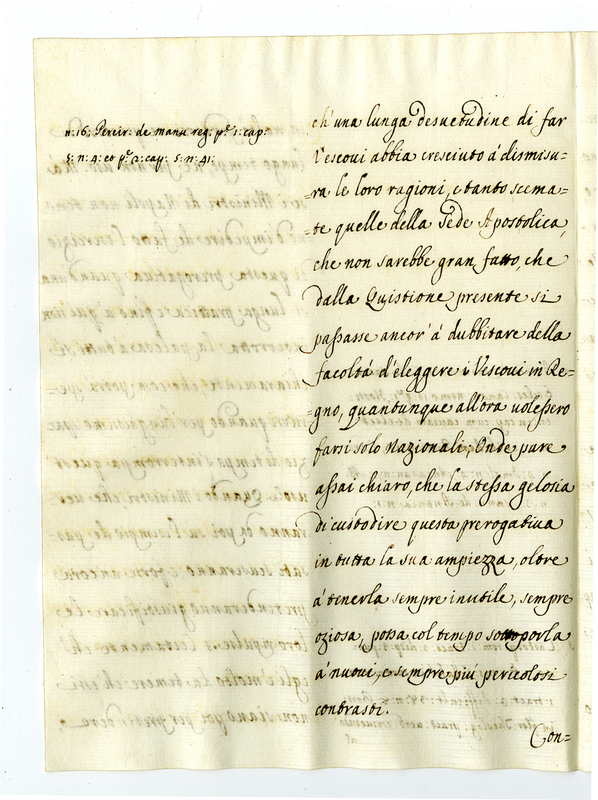 n: 16: Pereir: de manu reg: p.e 1: cap:
5: n: 4: et p.e 2: cap: 5: n: 41:
ch'una lunga desuetudine di far
Vescoui abbia cresciuto á dismisu=
=ra le loro ragioni, e tanto scema=
=te quelle della Sede Apostolica,
che non sarebbe gran fatto, che
dalla Quistione presente si
passasse ancor' á dubbitare della
facoltá d'eleggere i Vescoui in Re=
=gno, quantunque all'ora uolessero
farsi solo Nazionali; Onde pare
assai chiaro, che la stessa gelosia
di custodire questa prerogatiua
in tutta la sua ampiezza, oltre
á tenerla sempre inutile, sempre
oziosa, possa col tempo sottoporla
á nuoui, e sempre piú pericolosi
contrasti.
Con=